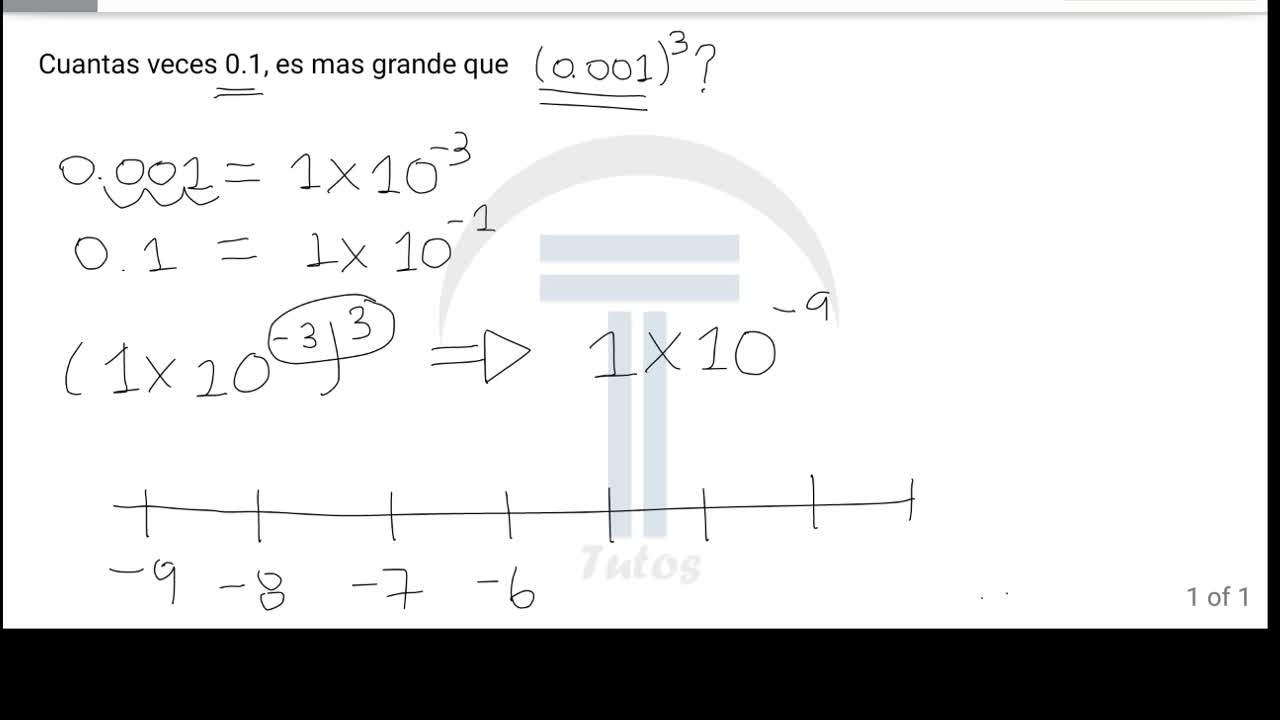 Cuantas veces 0.1, es mas grande que (0.001)³?
0.001 = 1 x 10⁻³
0.1 = 1 x 10⁻¹
(1 x 10⁻³)³ ⇒ 1 x 10⁻⁹
-9 -8 -7 -6
Tutos
1 of 1